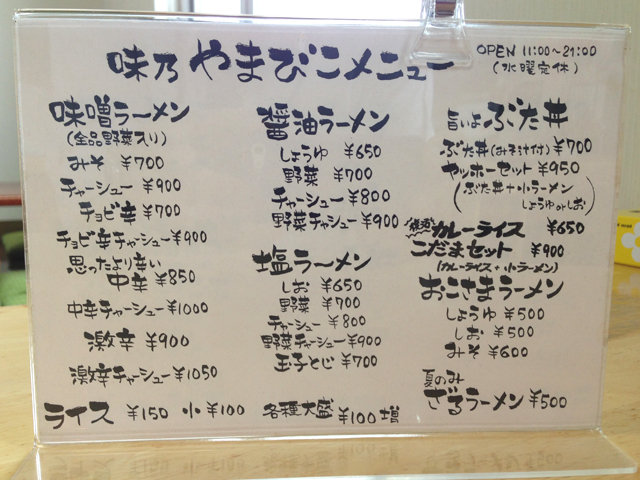 味乃 やまびこメニュー
OPEN 11:00~21:00
(水曜定休)
味噌ラーメン
(全品野菜入り)
みそ ¥700
チャーシュー ¥900
チョビ辛 ¥700
チョビ辛チャーシュー ¥900
思ったより辛い
中辛 ¥850
中辛チャーシュー ¥1000
激辛 ¥900
激辛チャーシュー ¥1050
ライス ¥150 小 ¥100
醤油ラーメン
しょうゆ ¥650
野菜 ¥700
チャーシュー ¥800
野菜チャーシュー ¥900
塩ラーメン
しお ¥650
野菜 ¥700
チャーシュー ¥800
野菜チャーシュー ¥900
玉子とじ ¥700
各種大盛 ¥100増
旨いよ ぶた丼
ぶた丼(みそ汁付) ¥700
ヤッホーセット ¥950
(ぶた丼+小ラーメン
しょうゆorしお)
カレーライス ¥650
こだまセット ¥900
(カレーライス+小ラーメン)
おこさまラーメン
しょうゆ ¥500
しお ¥500
みそ ¥600
夏のみ
ざるラーメン ¥500